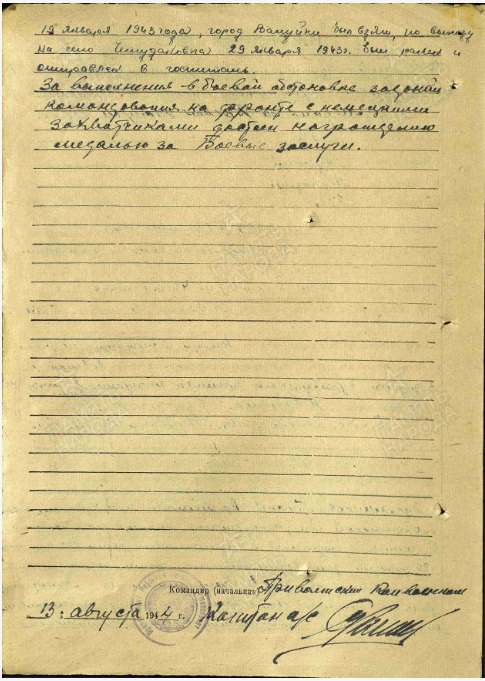 19 января 1943 года, город Валуйки был взят, по выходу
на село 29 января 1943г. был ранен и
отправлен в госпиталь.
За выполнения в боевой обстановке заданий
командования на фронте с немецкими
захватчиками достоин награждению
медалью за Боевые заслуги.
Командир (начальник)
13: августа 194 г. Капитан а/с